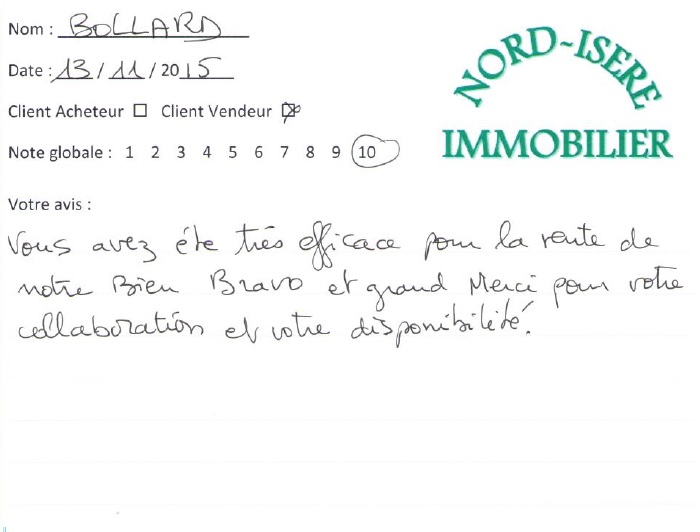 Nom : BOLLARD
NORD-ISERE
IMMOBILIER
Date : 13 / 11 / 2015
Client Acheteur ☐ Client Vendeur ☒
Note globale : 1 2 3 4 5 6 7 8 9 10
Votre avis :
Vous avez éte très efficace pour la vente de
notre Bien Bravo et grand Merci pour votre
collaboration et votre disponibilité.